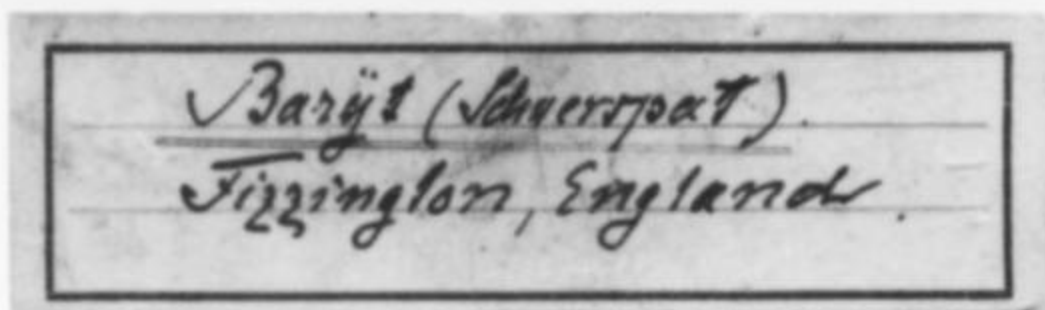 Barÿt (Schwerspat).
Fizzington, England.